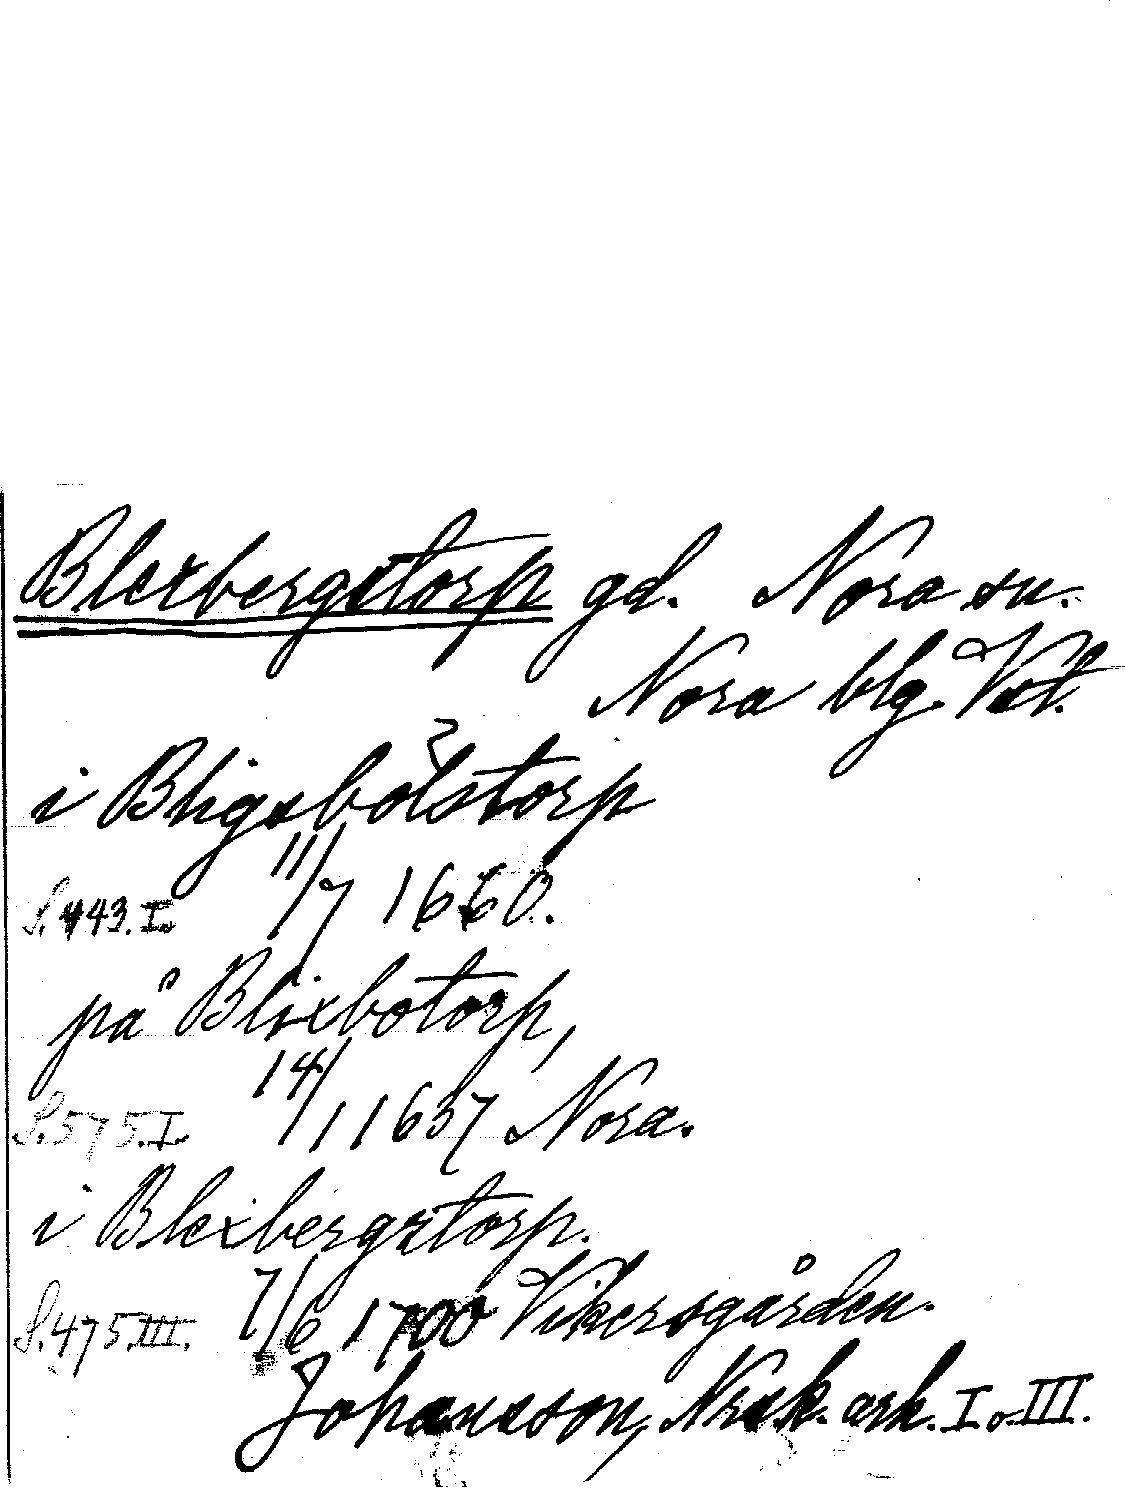 Blexbergstorp gd. Nora sn.
Nora blg. Vstl.
i Bligsbolstorp
S. 443. I. 11/7 1660.
på Blixbotorp,
S. 575. I. 14/1 1637 Nora.
i Blexbergstorp.
S. 475. III. 7/6 1700 Vikersgården.
Johansson, Nrsk. ark. I. o. III.